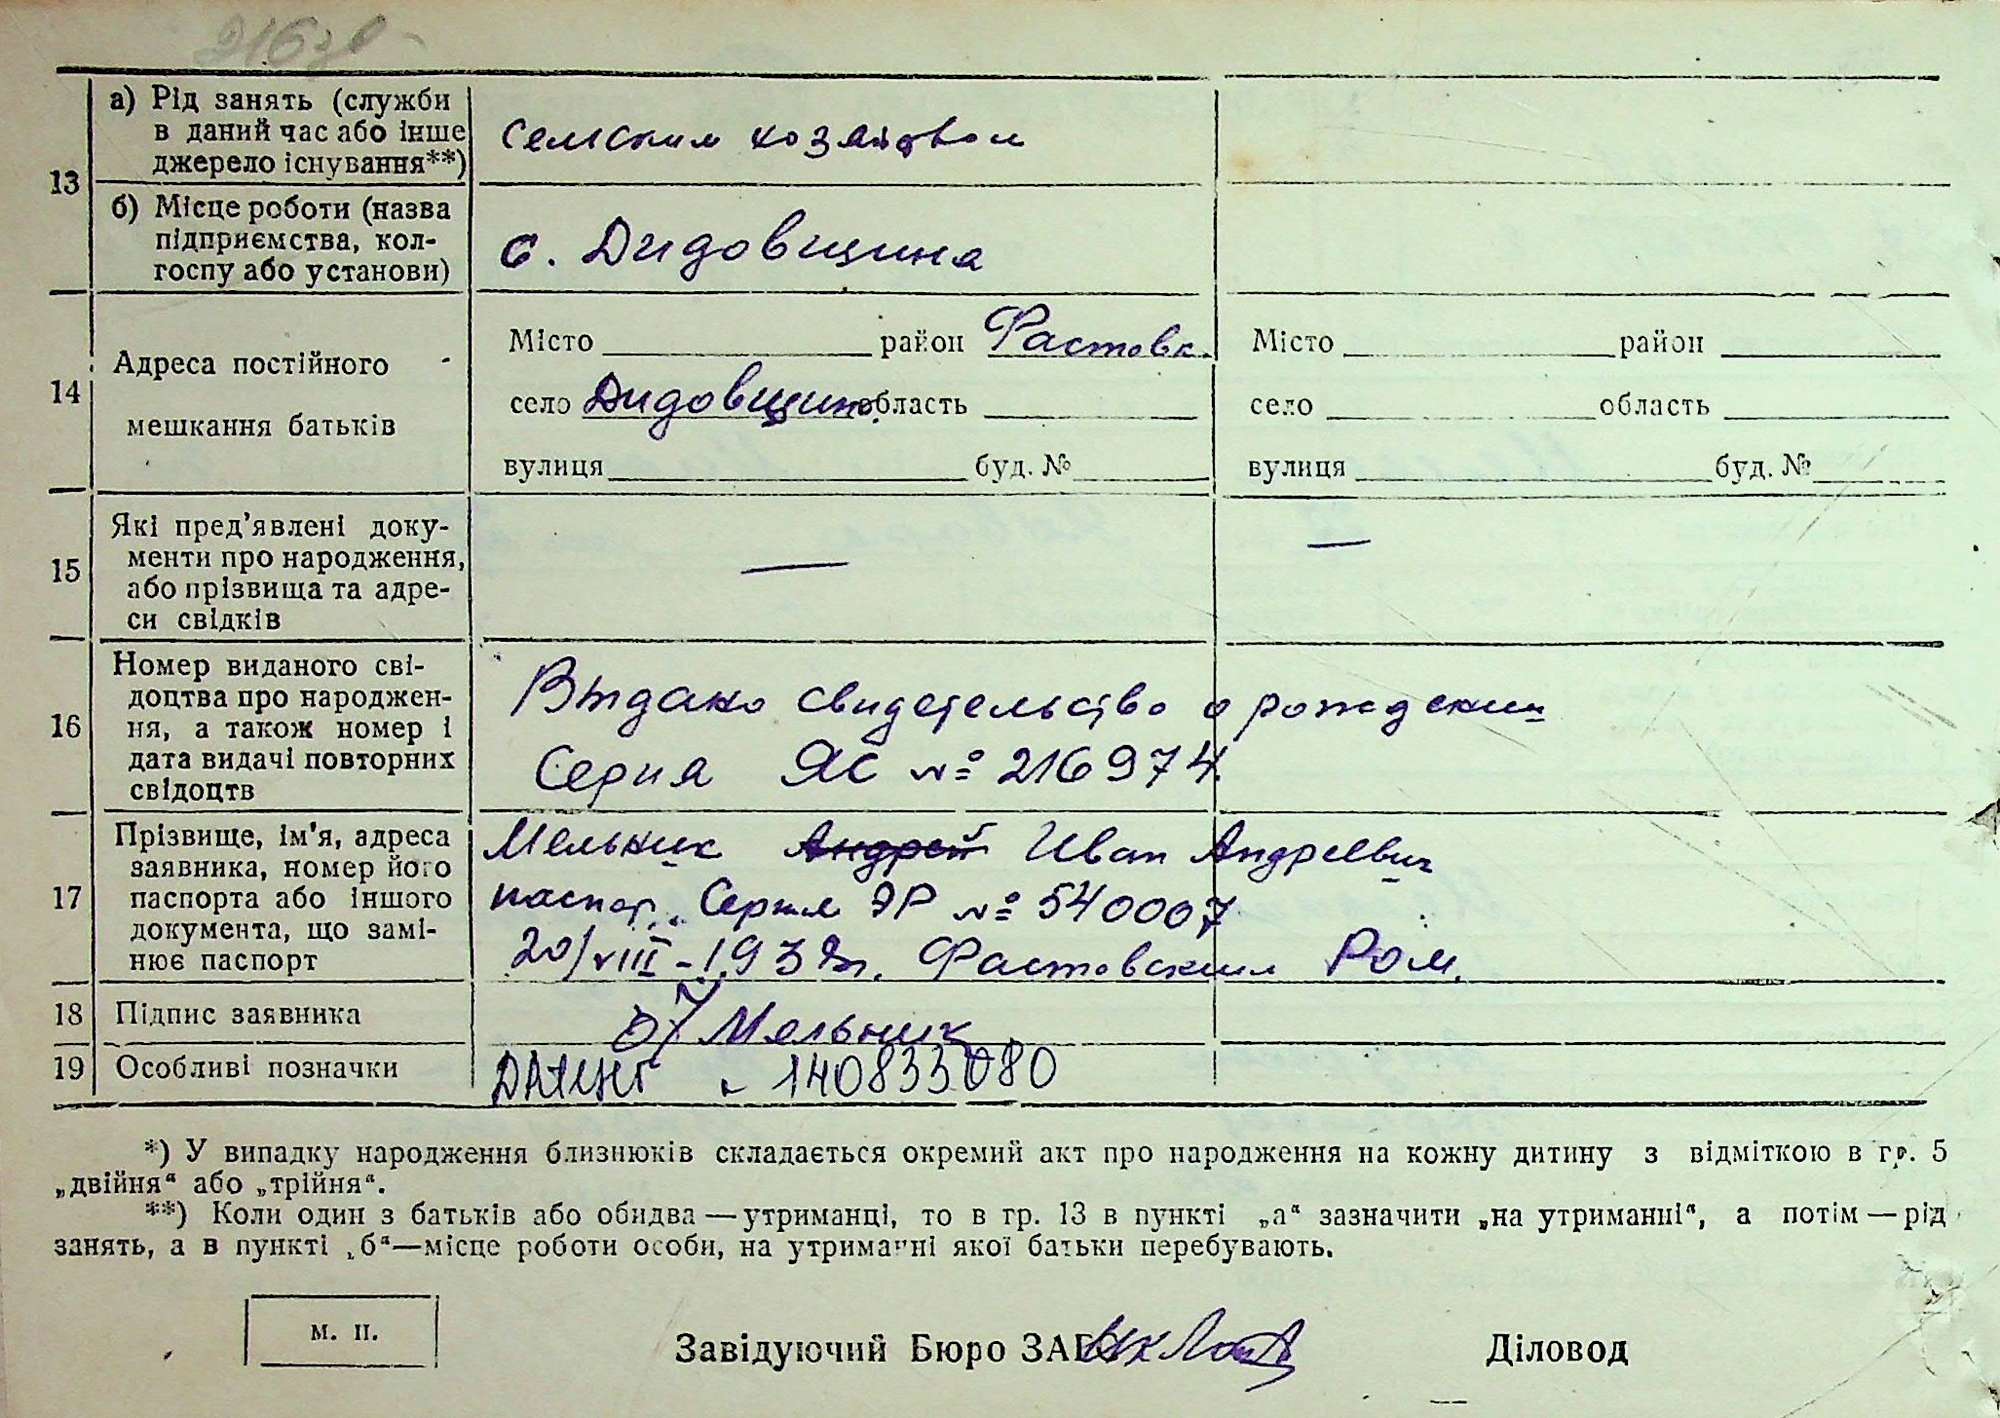 216зв
13
а) Рід занять (служби
в даний час або інше
джерело існування**)
Сельским хозяйством
б) Місце роботи (назва
підприємства, кол-
госпу або установи)
с. Дидовщина
14
Адреса постійного
мешкання батьків
Місто район Фастовск.
село Дидовщина область
вулиця буд. №
Місто район
село область
вулиця буд. №
15
Які пред'явлені доку-
менти про народження,
або прізвища та адре-
си свідків
—
—
16
Номер виданого сві-
доцтва про народжен-
ня, а також номер і
дата видачі повторних
свідоцтв
Выдано свидетельство о рождении
Серия ЯС № 216974
17
Прізвище, ім'я, адреса
заявника, номер його
паспорта або іншого
документа, що замі-
нює паспорт
Мельник Андрей Иван Андреевич
паспор. Серия ЭР № 540007
20/VIII - 193 г. Фастовским Ром.
18
Підпис заявника
Мельник
19
Особливі позначки
140833080
*) У випадку народження близнюків складається окремий акт про народження на кожну дитину з відміткою в гр. 5
„двійня“ або „трійня“.
**) Коли один з батьків або обидва — утриманці, то в гр. 13 в пункті „а“ зазначити „на утриманні“, а потім — рід
занять, а в пункті „б“—місце роботи особи, на утриманні якої батьки перебувають.
м. п.
Завідуючий Бюро ЗАГС
Діловод